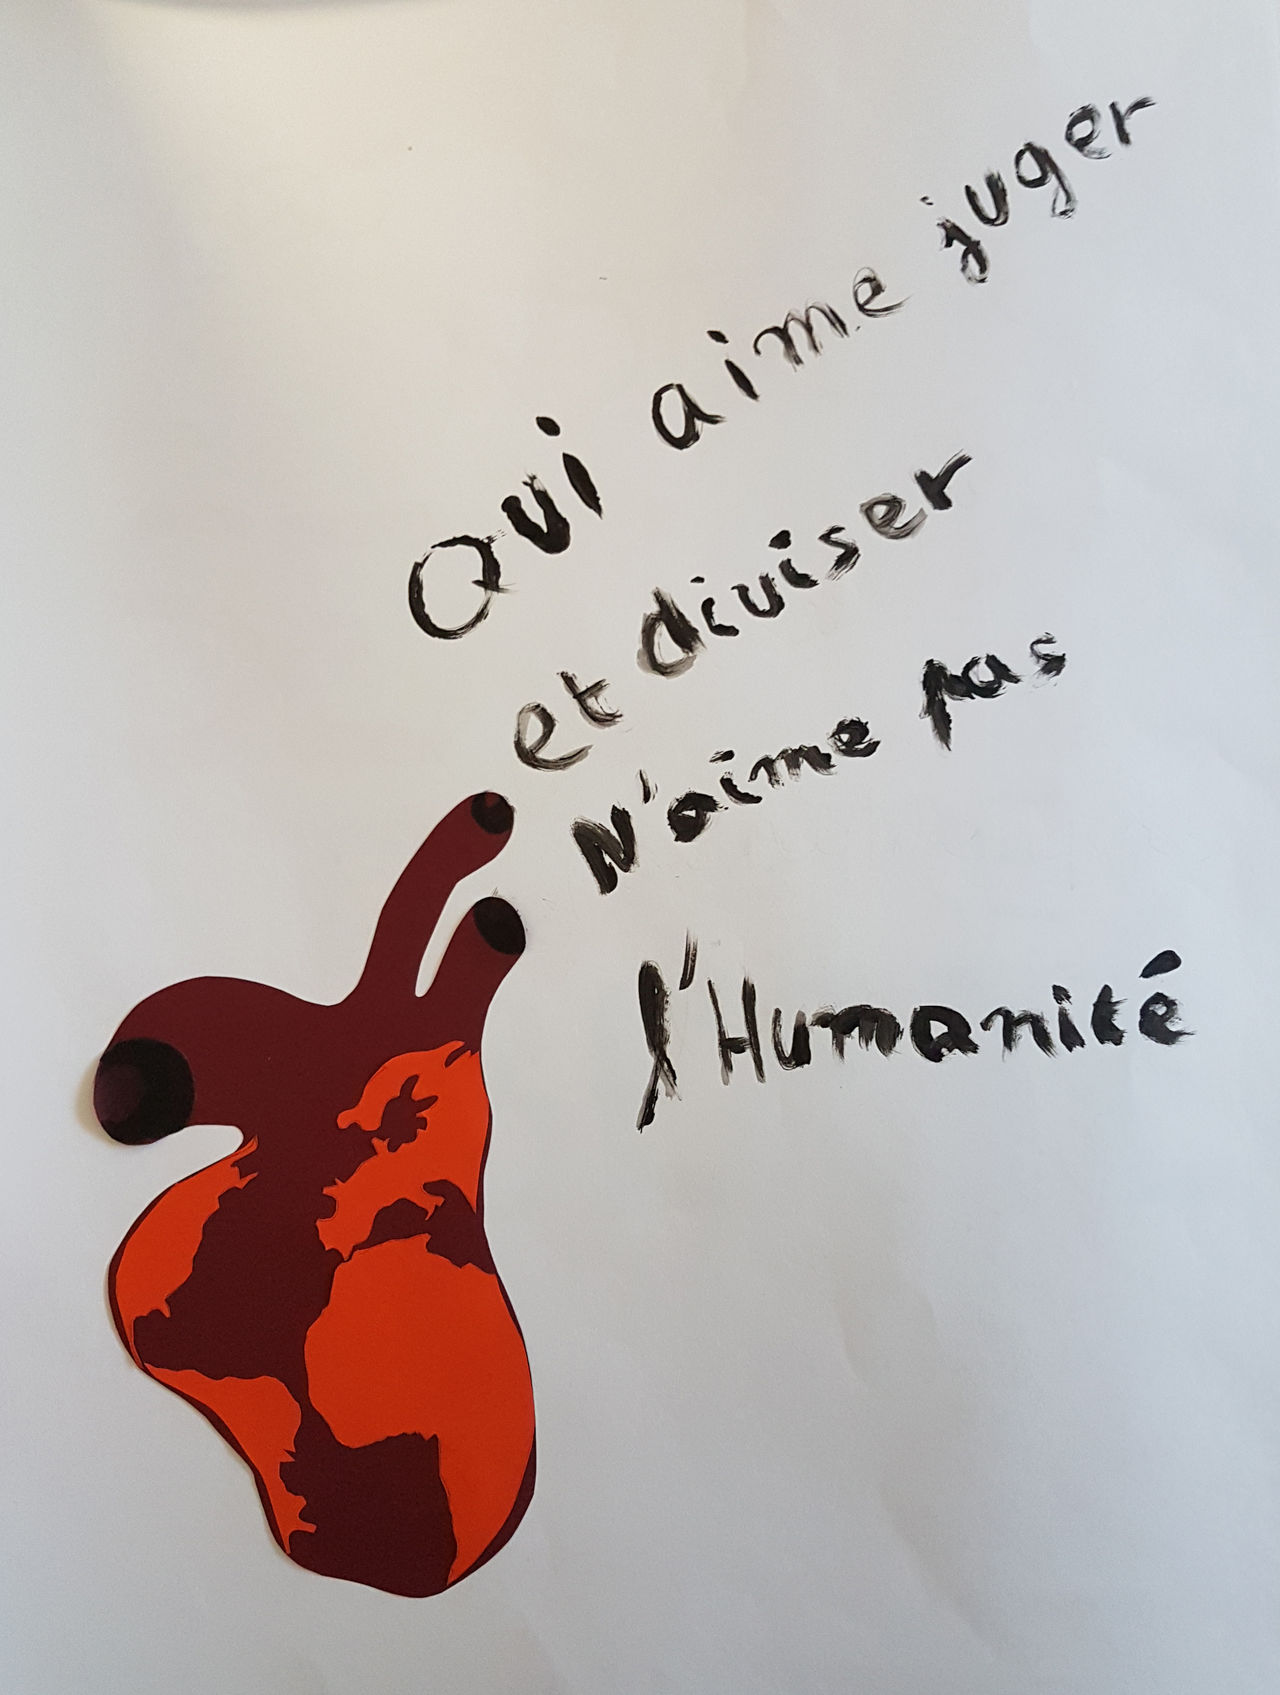 Qui aime juger
et diviser
N'aime pas
l'Humanité